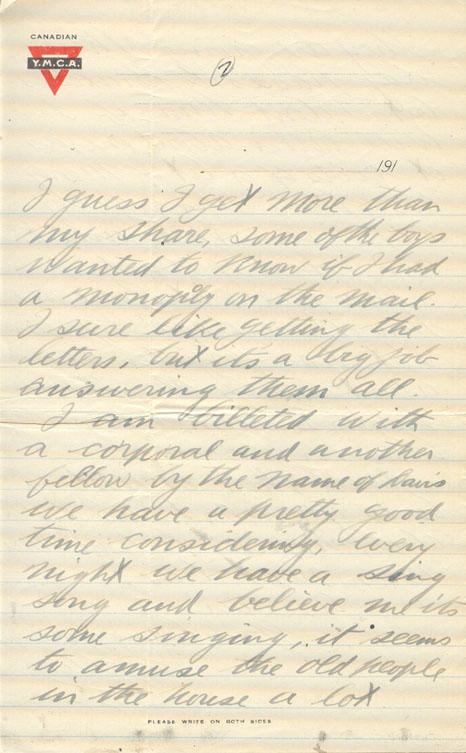 CANADIAN
Y.M.C.A.
2
191
I guess I get more than
my share, some of the boys
wanted to know if I had
a monoply on the mail.
I sure like getting the
letters, but its a big job
answering them all.
I am billeted with
a corporal and another
fellow by the name of Davis
we have a pretty good
time considering, every
night we have a sing
song and believe me its
some singing, it seems
to amuse the old people
in the house a lot
PLEASE WRITE ON BOTH SIDES